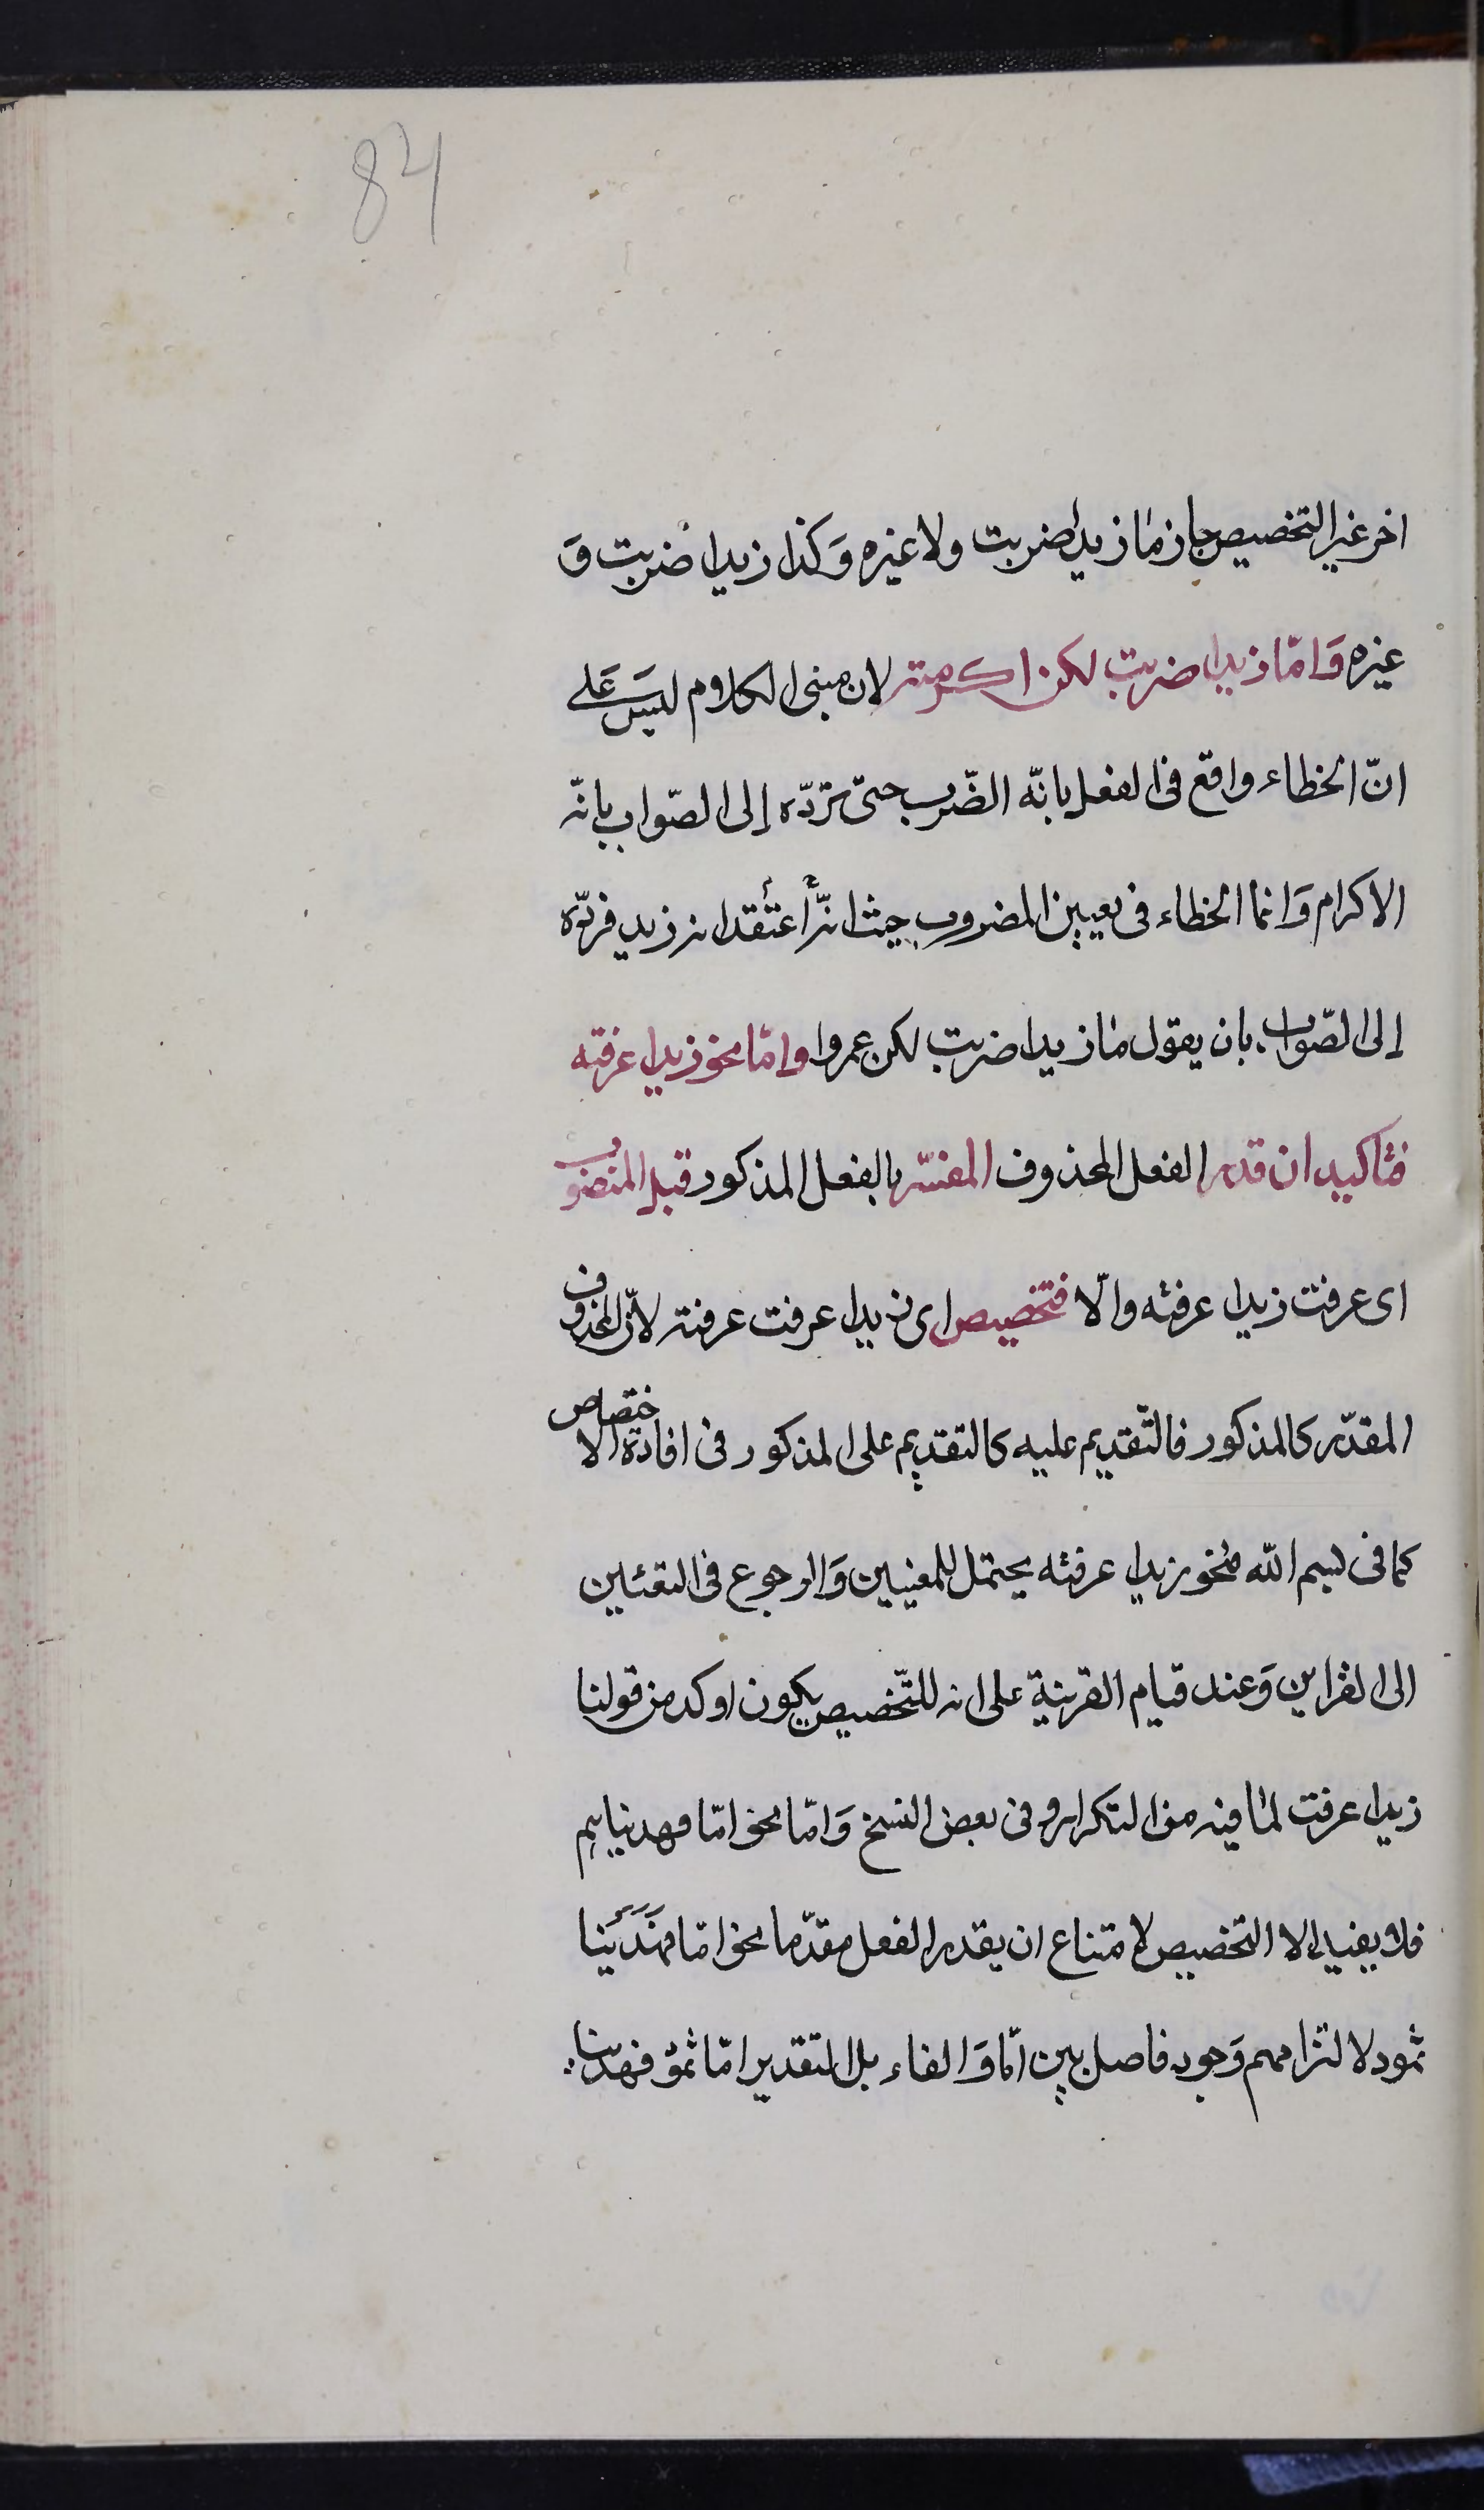 84
اخر غير التخصيص جاز ما زيدا ضربت ولا غيره وَكذا زيدا ضربت وَ
غيره وَامّا زيدا ضربت لكن اكرمته لان مبنى الكلام ليسَ عَلى
انّ الخطاء واقع فى الفعل بانّه الضّرب حتى تردّه إلى الصّواب بانّه
الاكرام وَانما الخطاء فى تعيين المضروب حيث انّه أعتقد انه زيد فردّه
إلى الصّواب بان يقول ما زيدا ضربت لكن عمروا وامّا نحو زيدا عرفته
فتاكيد ان قدر الفعل المحذوف المفسّر بالفعل المذكور قبل المنصوب
اى عرفت زيدا عرفته والّا فتخصيص اى زيدا عرفت عرفته لانّ المحذوف
المقدّر كالمذكور فالتّقديم عليه كالتقديم على المذكور فى افادة الاختصاص
كما فى بسم الله فنحو زيدا عرفته يحتمل للمعنيين وَالرجوع فى التعئين
الى القراين وَعند قيام القرينة على انه للتّخصيص يكون اوكد من قولنا
زيدا عرفت لما فيه من التكرار وفى بعض النسخ وَامّا نحو امّا فهديناهم
فلا يفيد الا التخصيص لامتناع ان يقدر الفعل مقدّما نحو امّا فهَدَيْنا
ثمود لالتزامهم وَجود فاصل بين امّا وَالفاء بل التقدير امّا ثمود فهدينا